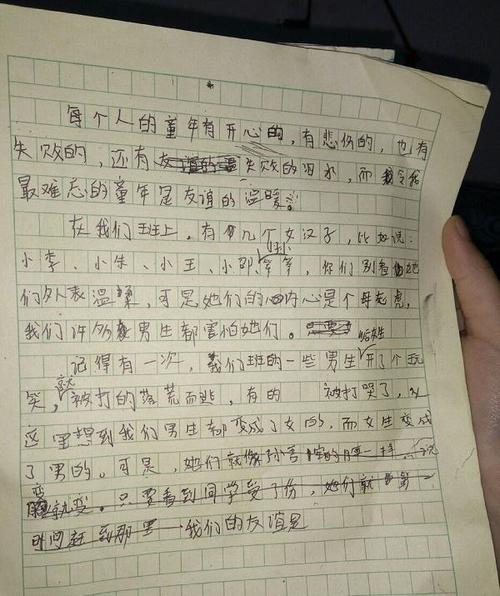 每个人的童年有开心的，有悲伤的，也有
失败的，还有友谊的温失败的泪水，而我令我
最难忘的童年是友谊的温暖。
在我们班上，有几个女汉子，比如说：
小李、小朱、小王、小邵、小孙等等，你们别看她
们外表温柔，可是她们的内心是个母老虎，
我们许多男生都害怕她们。
记得有一次，我们班的一些男生给女生开了个玩
笑，就被打的落荒而逃，有的 被打哭了，从
这里想到我们男生都变成了女的，而女生变成
了男的。可是，她们就像孙言空的脸一样，说
变就变。只要看到同学受了伤，她们就第一
时间赶到那里 我们的友谊是